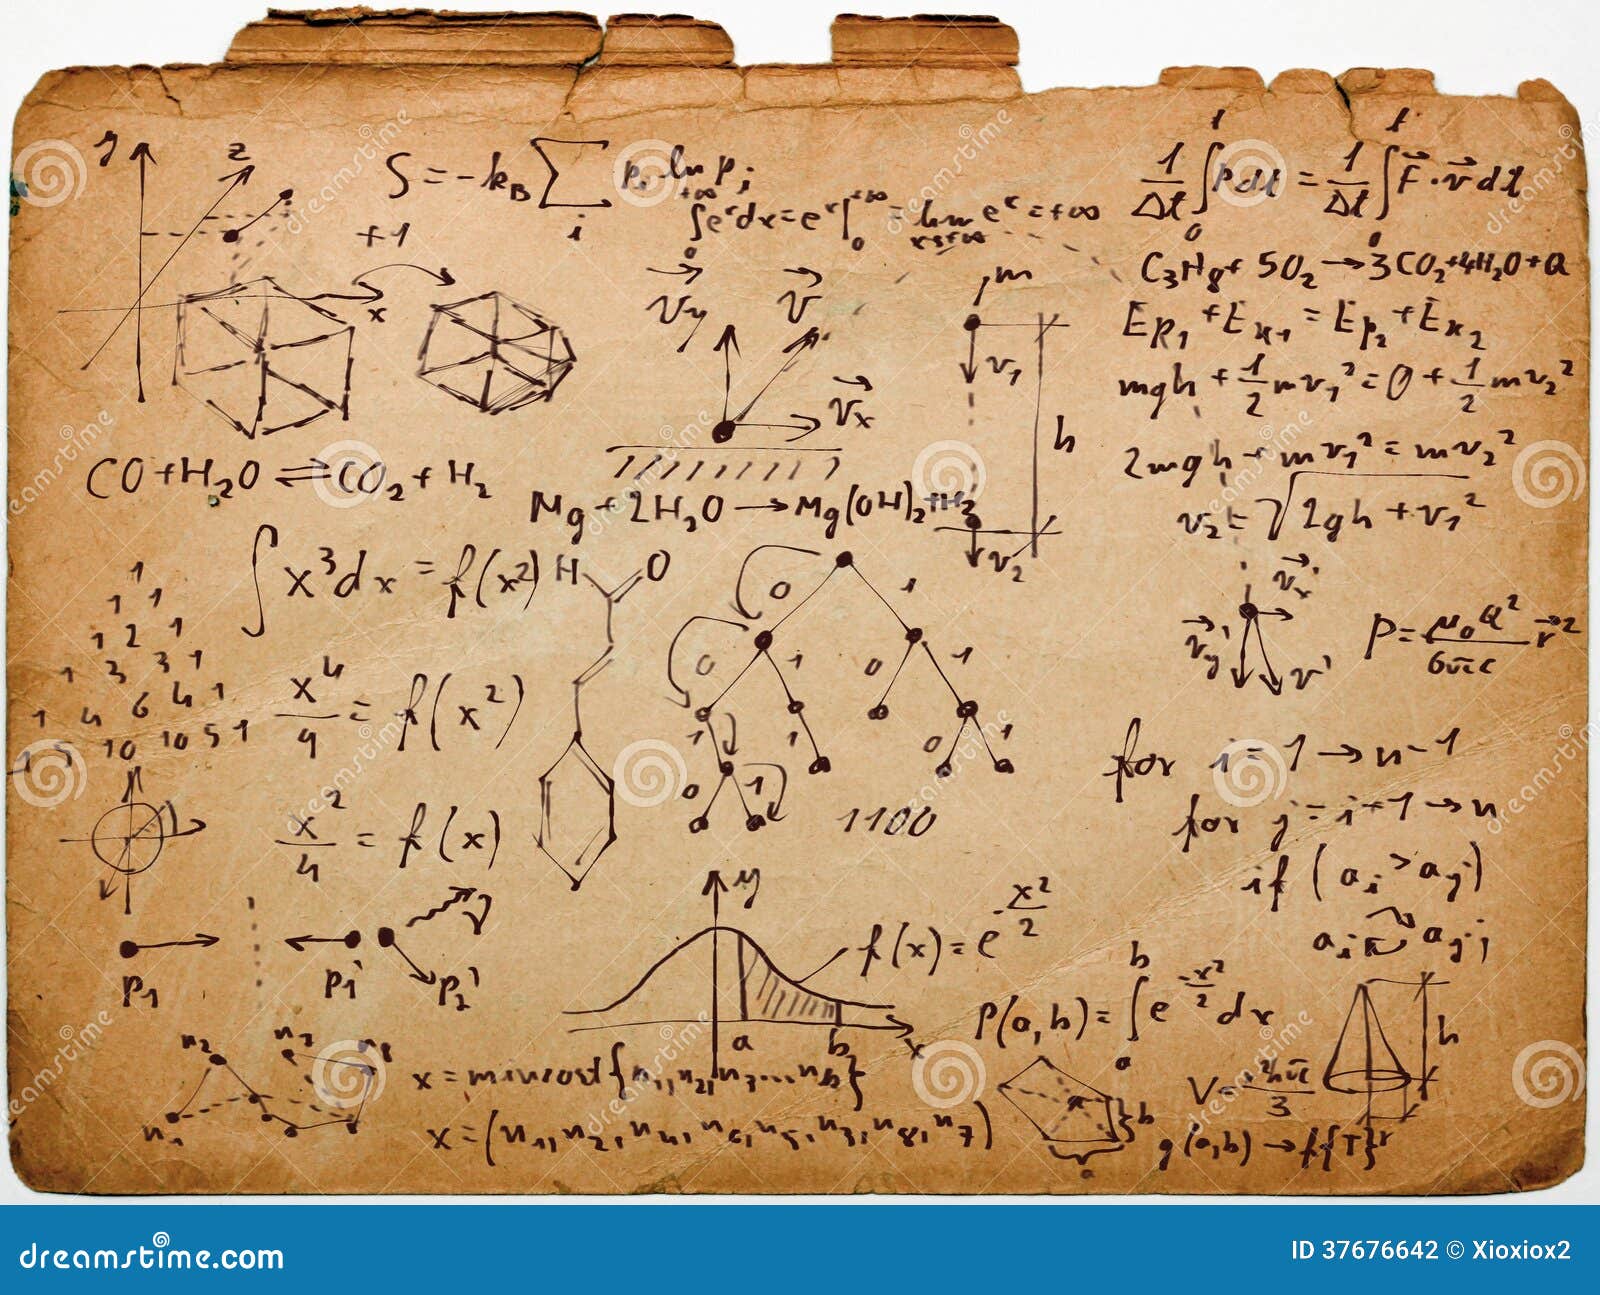 y
z
S = -k_B ∑ p_i ln p_i
i
+1
x
∫ e^x dx = e^x | = lim e^x = +∞
+∞
0
+∞
0
x→+∞
1/Δt ∫ P dt = 1/Δt ∫ F⃗ · v⃗ dt
t
0
t
0
C₃H₈ + 5O₂ → 3CO₂ + 4H₂O + Q
E_p₁ + E_k₁ = E_p₂ + E_k₂
mgh + 1/2 mv₁² = 0 + 1/2 mv₂²
2mgh + mv₁² = mv₂²
v₂ = √2gh + v₁²
v⃗_y
v⃗
v⃗_x
m
v₁
h
v₂
CO + H₂O ⇌ CO₂ + H₂
Mg + 2H₂O → Mg(OH)₂ + H₂
∫ x³ dx = f(x²)
H
O
1
1 1
1 2 1
1 3 3 1
1 4 6 4 1
1 5 10 10 5 1
x⁴/4 = f(x²)
x²/4 = f(x)
0
1
0
1
0
1
1
1
0
1
0
1
1100
v⃗_x'
v⃗_y'
v⃗'
P = μ₀Q²/6πc r⃗²
for i = 1 → n-1
for j = i+1 → n
if (a_i > a_j)
a_i a_j
p₁
p₁'
p₂'
y
f(x) = e^-x²/2
a
b
x
P(a,b) = ∫ e^-x²/2 dx
b
a
n₂
n₃
n₈
n₁
x = mincost{n₁, n₂, n₃ ... n₈}
x = (n₁, n₂, n₄, n₆, n₅, n₃, n₈, n₇)
b
a
h
r
g(a,b) → f{T}
dreamstime.com
ID 37676642 © Xioxiox2